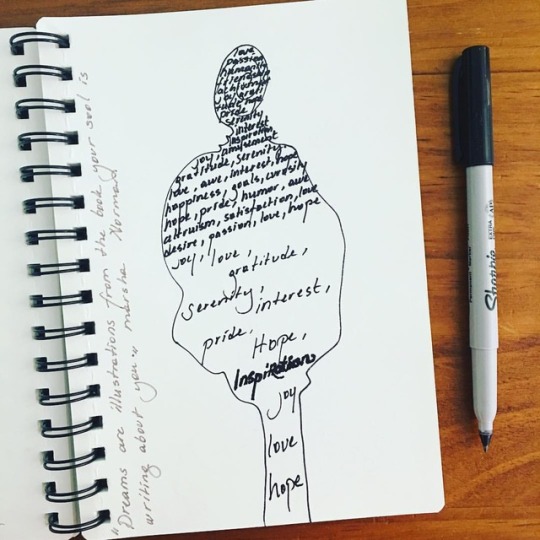 love
passion
humanity
friendship
pride
serenity
interest
inspiration
joy, amusement
gratitude, serenity
love, awe, interest, hope
happiness, goals, curiosity
hope, pride, humor, awe
altruism, satisfaction, love
desire, passion, love, hope
joy, love,
gratitude,
serenity,
interest,
pride,
Hope,
Inspiration
joy
love
hope
"Dreams are illustrations from the book your soul is
writing about you" marsha Norman
Sharpie